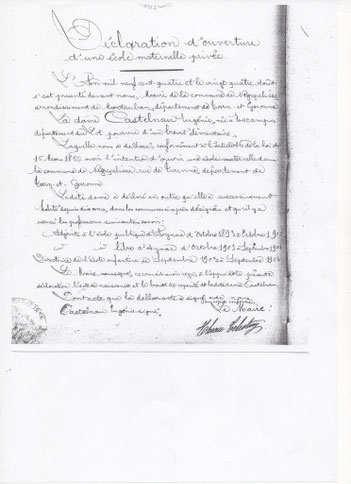 Déclaration d'ouverture
d'une école maternelle privée.
L'an mil neuf cent quatre et le vingt quatre
s'est présentée devant nous, Maire de la commune de Négrepelisse
arrondissement de Montauban, département de Tarn et Garonne
La dame Castelnau Eugénie, née à Lacanque
département du Lot, pourvue d'un brevet élémentaire.
Laquelle nous a déclaré, conformément à l'article de la loi du
15 Mars 1850 avoir l'intention d'ouvrir une école maternelle dans
la commune de Négrepelisse, rue de département de
Tarn et Garonne
Ladite dame a déclaré en outre qu'elle a successivement
habité depuis dix ans, dans les communes après désignées et qu'il y a
exercé les professions suivantes savoir:
Adjointe à l'école publique d'Octobre 1893 à Octobre 1901
id libre d' d'Octobre 1901 à Septembre 1903
Directrice de l'école enfantine de Septembre 1903 à Septembre 1904
Le Maire, soussigné, reconnait avoir reçu à l'appui de la présente
déclaration l'acte de naissance et le brevet de capacité de ladite dame Castelnau
Dont acte que la déclarante a signé avec nous
Castelnau Eugénie signé, Le Maire: